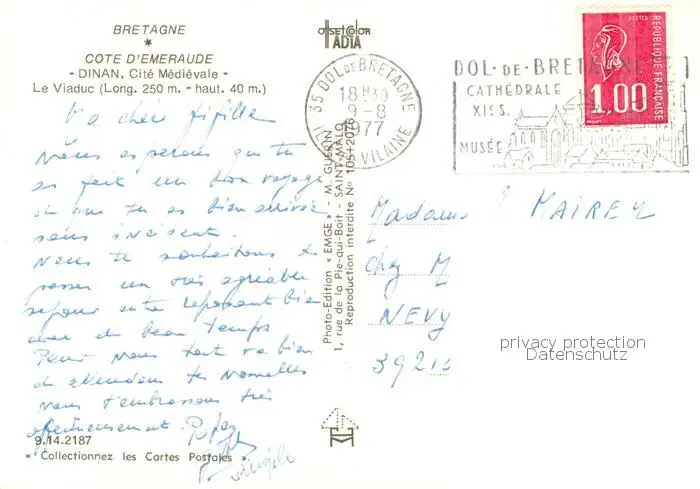 BRETAGNE
★
COTE D'EMERAUDE
- DINAN, Cité Médiévale -
Le Viaduc (Long. 250 m. - haut. 40 m.)
offset color
IADIA
35 DOL DE BRETAGNE
18 H 30
9-8
1977
ILLE ET VILAINE
DOL-DE-BRETAGNE
CATHÉDRALE
XIII S.
MUSÉE
POSTES
REPUBLIQUE FRANÇAISE
1,00
Ma chère
Nous espérons que tu
as fait un bon voyage
et que tu es bien arrivée
sans incident.
Nous te souhaitons de
passer un très agréable
séjour bien
avec du beau temps
Pour nous tout va bien
on attendons tes nouvelles
nous t'embrassons très
affectueusement.
Photo-Edition « EMGE » - M. GUERIN
1, rue de la Pie-qui-Boit - SAINT-MALO
Reproduction interdite No 105+2076
Madame MAIREY
chez M
NEVY
392
privacy protection
Datenschutz
9.14.2187
« Collectionnez les Cartes Postales ».